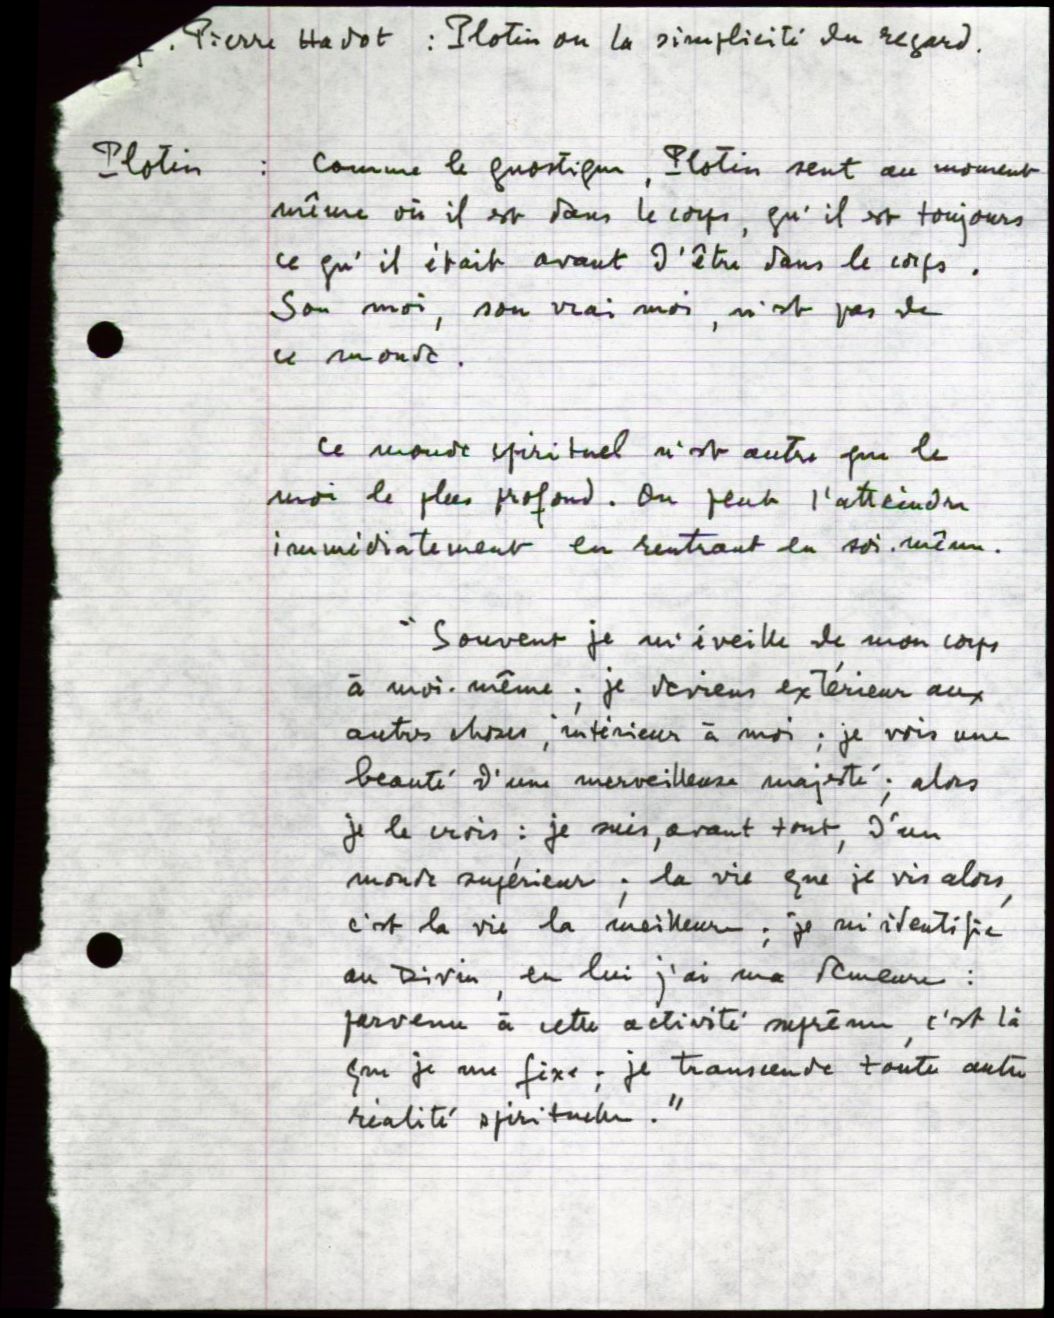 . Pierre Hadot : Plotin ou la simplicité du regard.
Plotin : Comme le gnostique, Plotin sent au moment
même où il est dans le corps, qu'il est toujours
ce qu'il était avant d'être dans le corps.
Son moi, son vrai moi, n'est pas de
ce monde.
Ce monde spirituel n'est autre que le
moi le plus profond. On peut l'atteindre
immédiatement en rentrant en soi-même.
"Souvent je m'éveille de mon corps
à moi-même ; je deviens extérieur aux
autres choses, intérieur à moi ; je vois une
beauté d'une merveilleuse majesté ; alors
je le crois : je suis, avant tout, d'un
monde supérieur ; la vie que je vis alors,
c'est la vie la meilleure ; je m'identifie
au Divin, en lui j'ai ma demeure :
parvenu à cette activité suprême, c'est là
que je me fixe ; je transcende toute autre
réalité spirituelle."